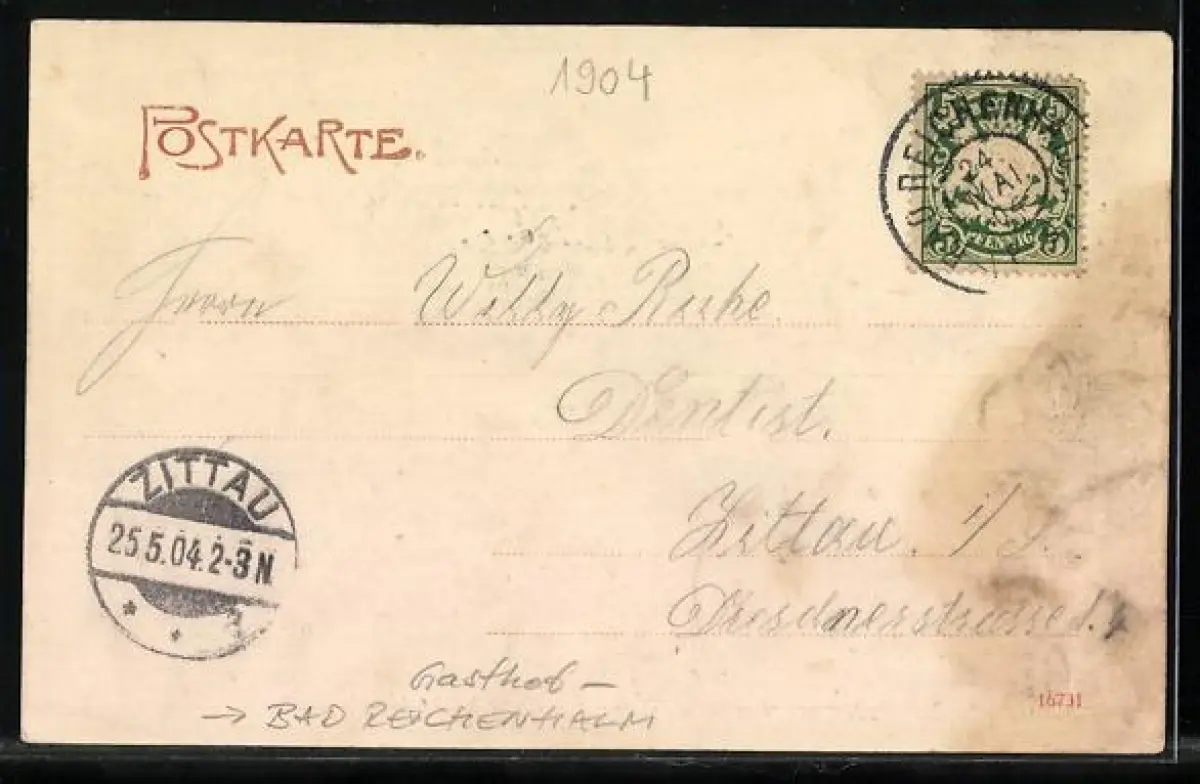 1904
POSTKARTE.
BAD REICHENHALL
24
MAI
5 PFENNIG 5
Herrn Willy Ruhe.
Dentist.
Zittau i/S.
Dresdnerstrasse
ZITTAU
25.5.04.2-3N
* *
Gasthof -
→ BAD REICHENHALM
16731